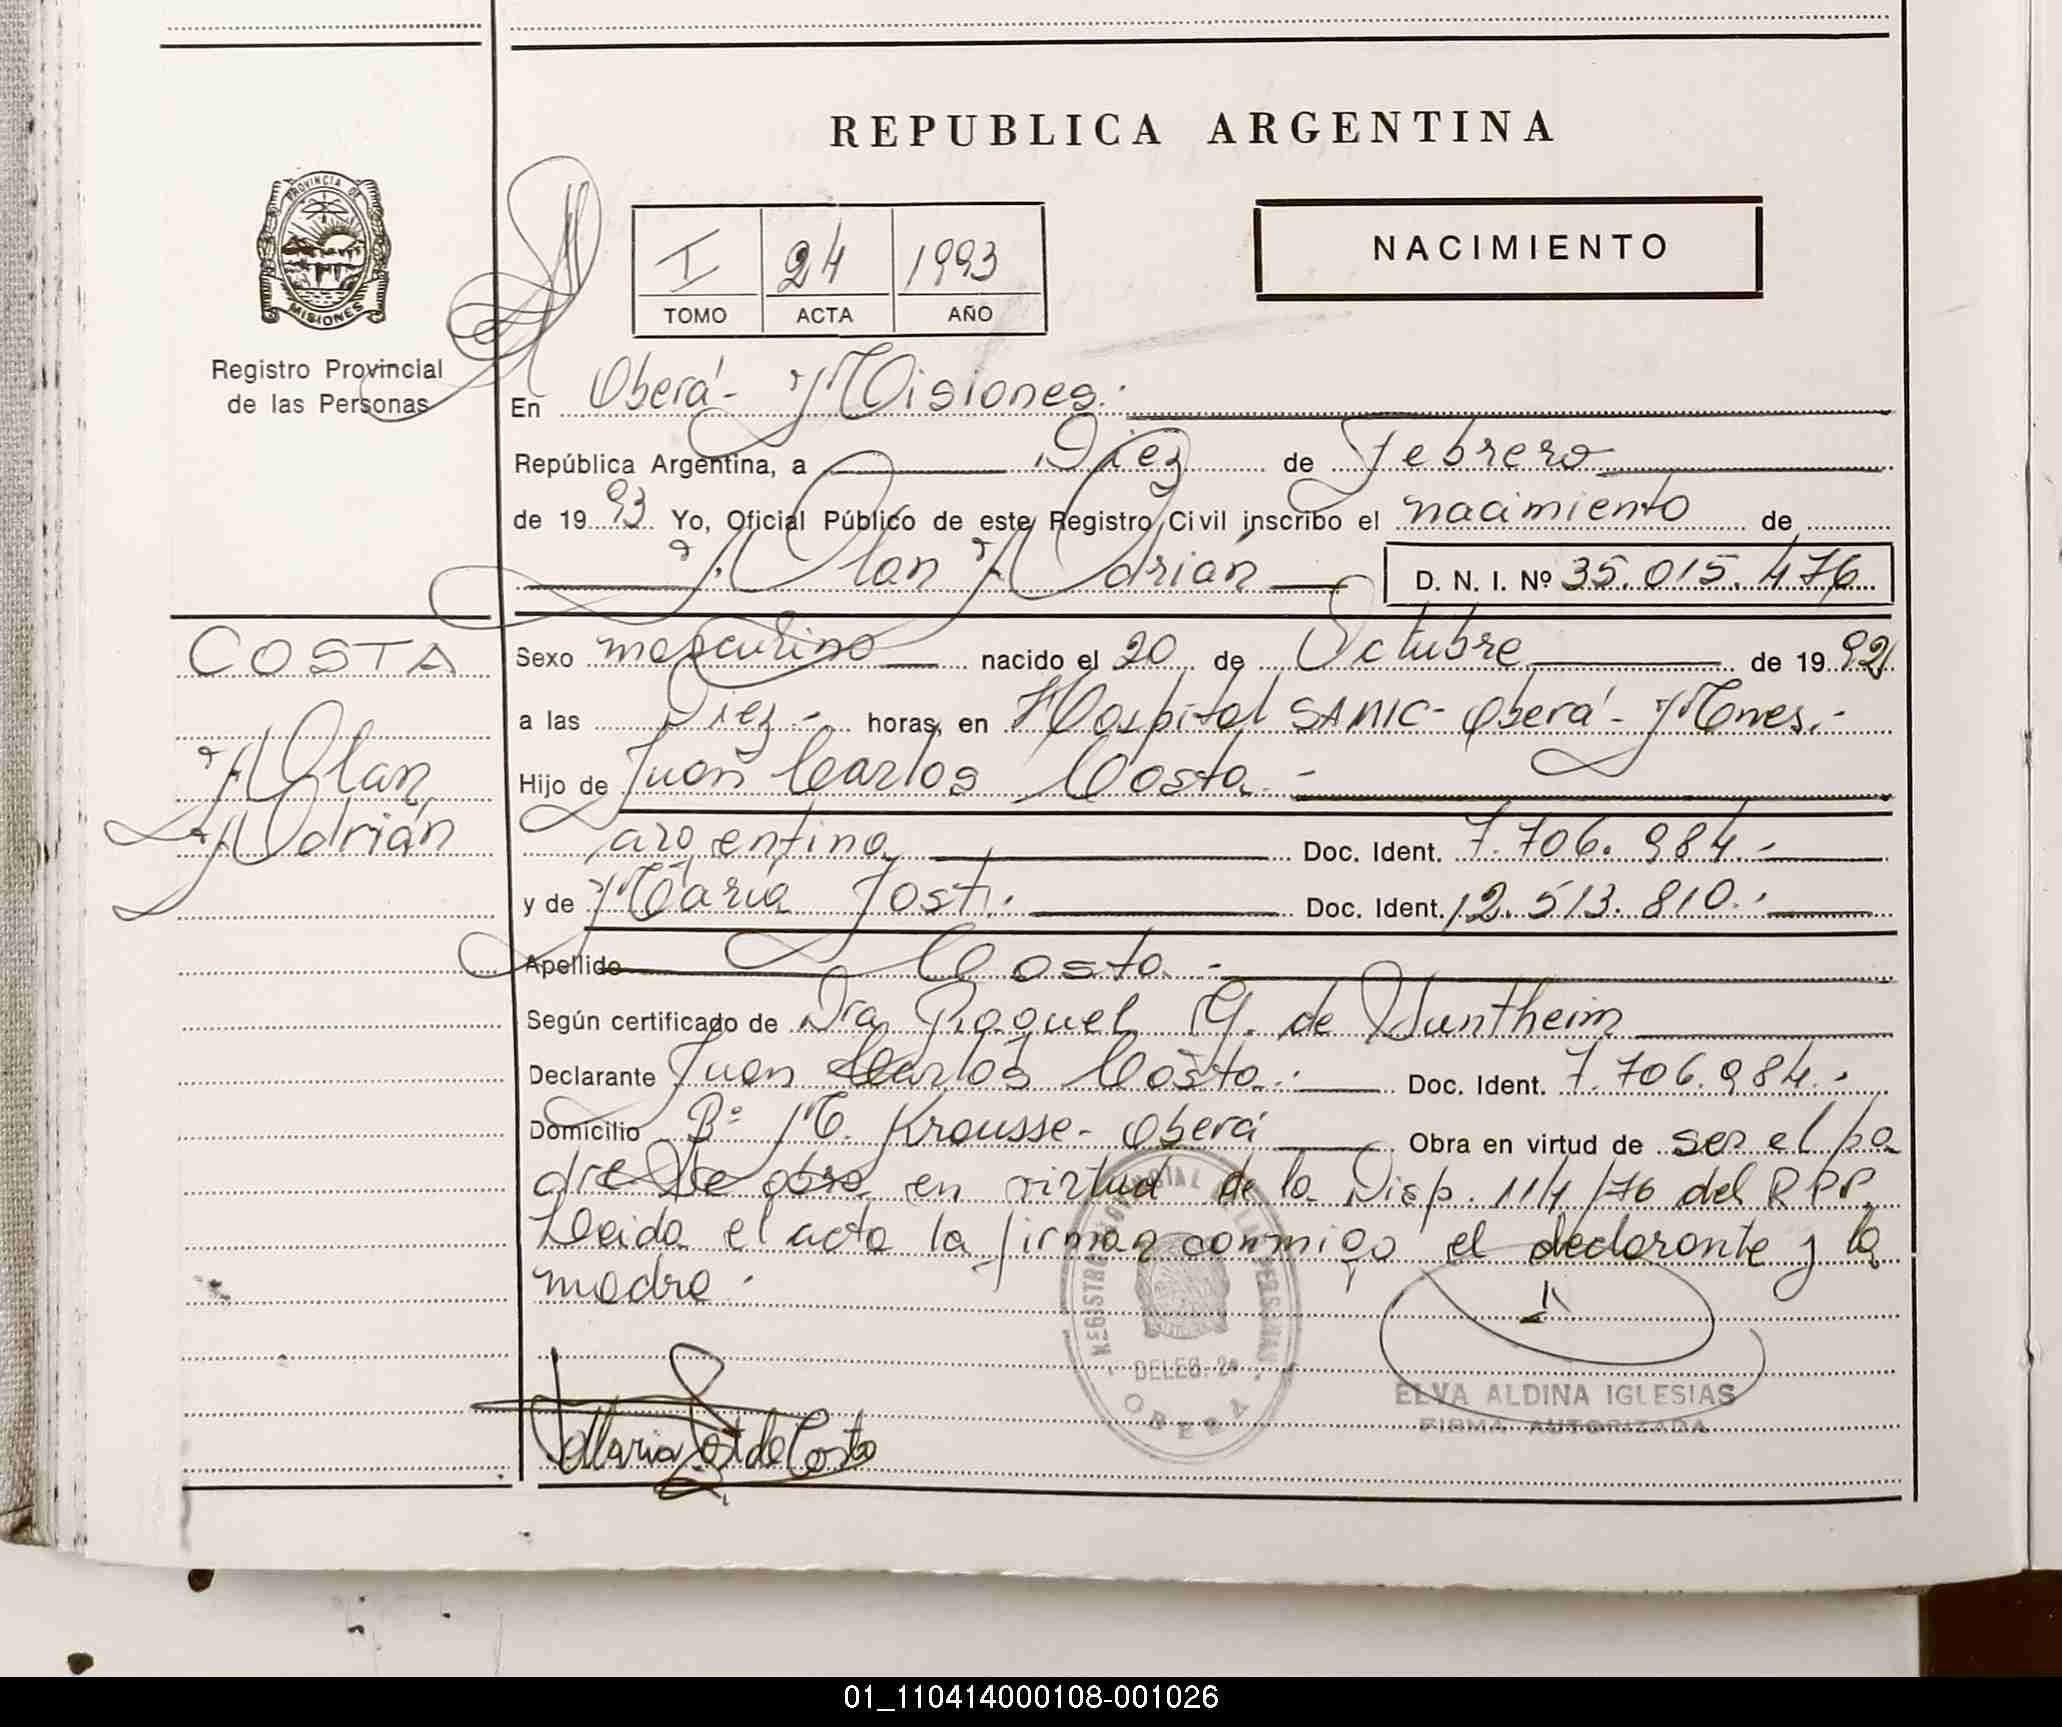 REPUBLICA ARGENTINA
PROVINCIA DE MISIONES
NACIMIENTO
I 24 1993
TOMO ACTA AÑO
Registro Provincial
de las Personas
En Oberá - Misiones.-
República Argentina, a Diez de Febrero
de 1993 Yo, Oficial Público de este Registro Civil inscribo el nacimiento de
Alan Adrián D. N. I. Nº 35.015.476
COSTA
Alan
Adrián
Sexo masculino nacido el 20 de Octubre de 1992
a las Diez.- horas, en Hospital SAMIC - Oberá - Mnes.-
Hijo de Juan Carlos Costa.-
argentino Doc. Ident. 7.706.984.-
y de María Jost.- Doc. Ident. 12.513.810.-
Apellido Costa.-
Según certificado de Dra Raquel G. de
Declarante Juan Carlos Costa.- Doc. Ident. 7.706.984.-
Domicilio Bº M. Krausse - Oberá Obra en virtud de ser el pa
dre Se obra en virtud de la Disp. 114/76 del R P P.
Leida el acta la firman conmigo el declarante y la
madre.-
REGISTRO PROVINCIAL DE LAS PERSONAS
DELEG. 2ª
OBERA
ELVA ALDINA IGLESIAS
FIRMA AUTORIZADA
Maria Jost de Costa
01_110414000108-001026